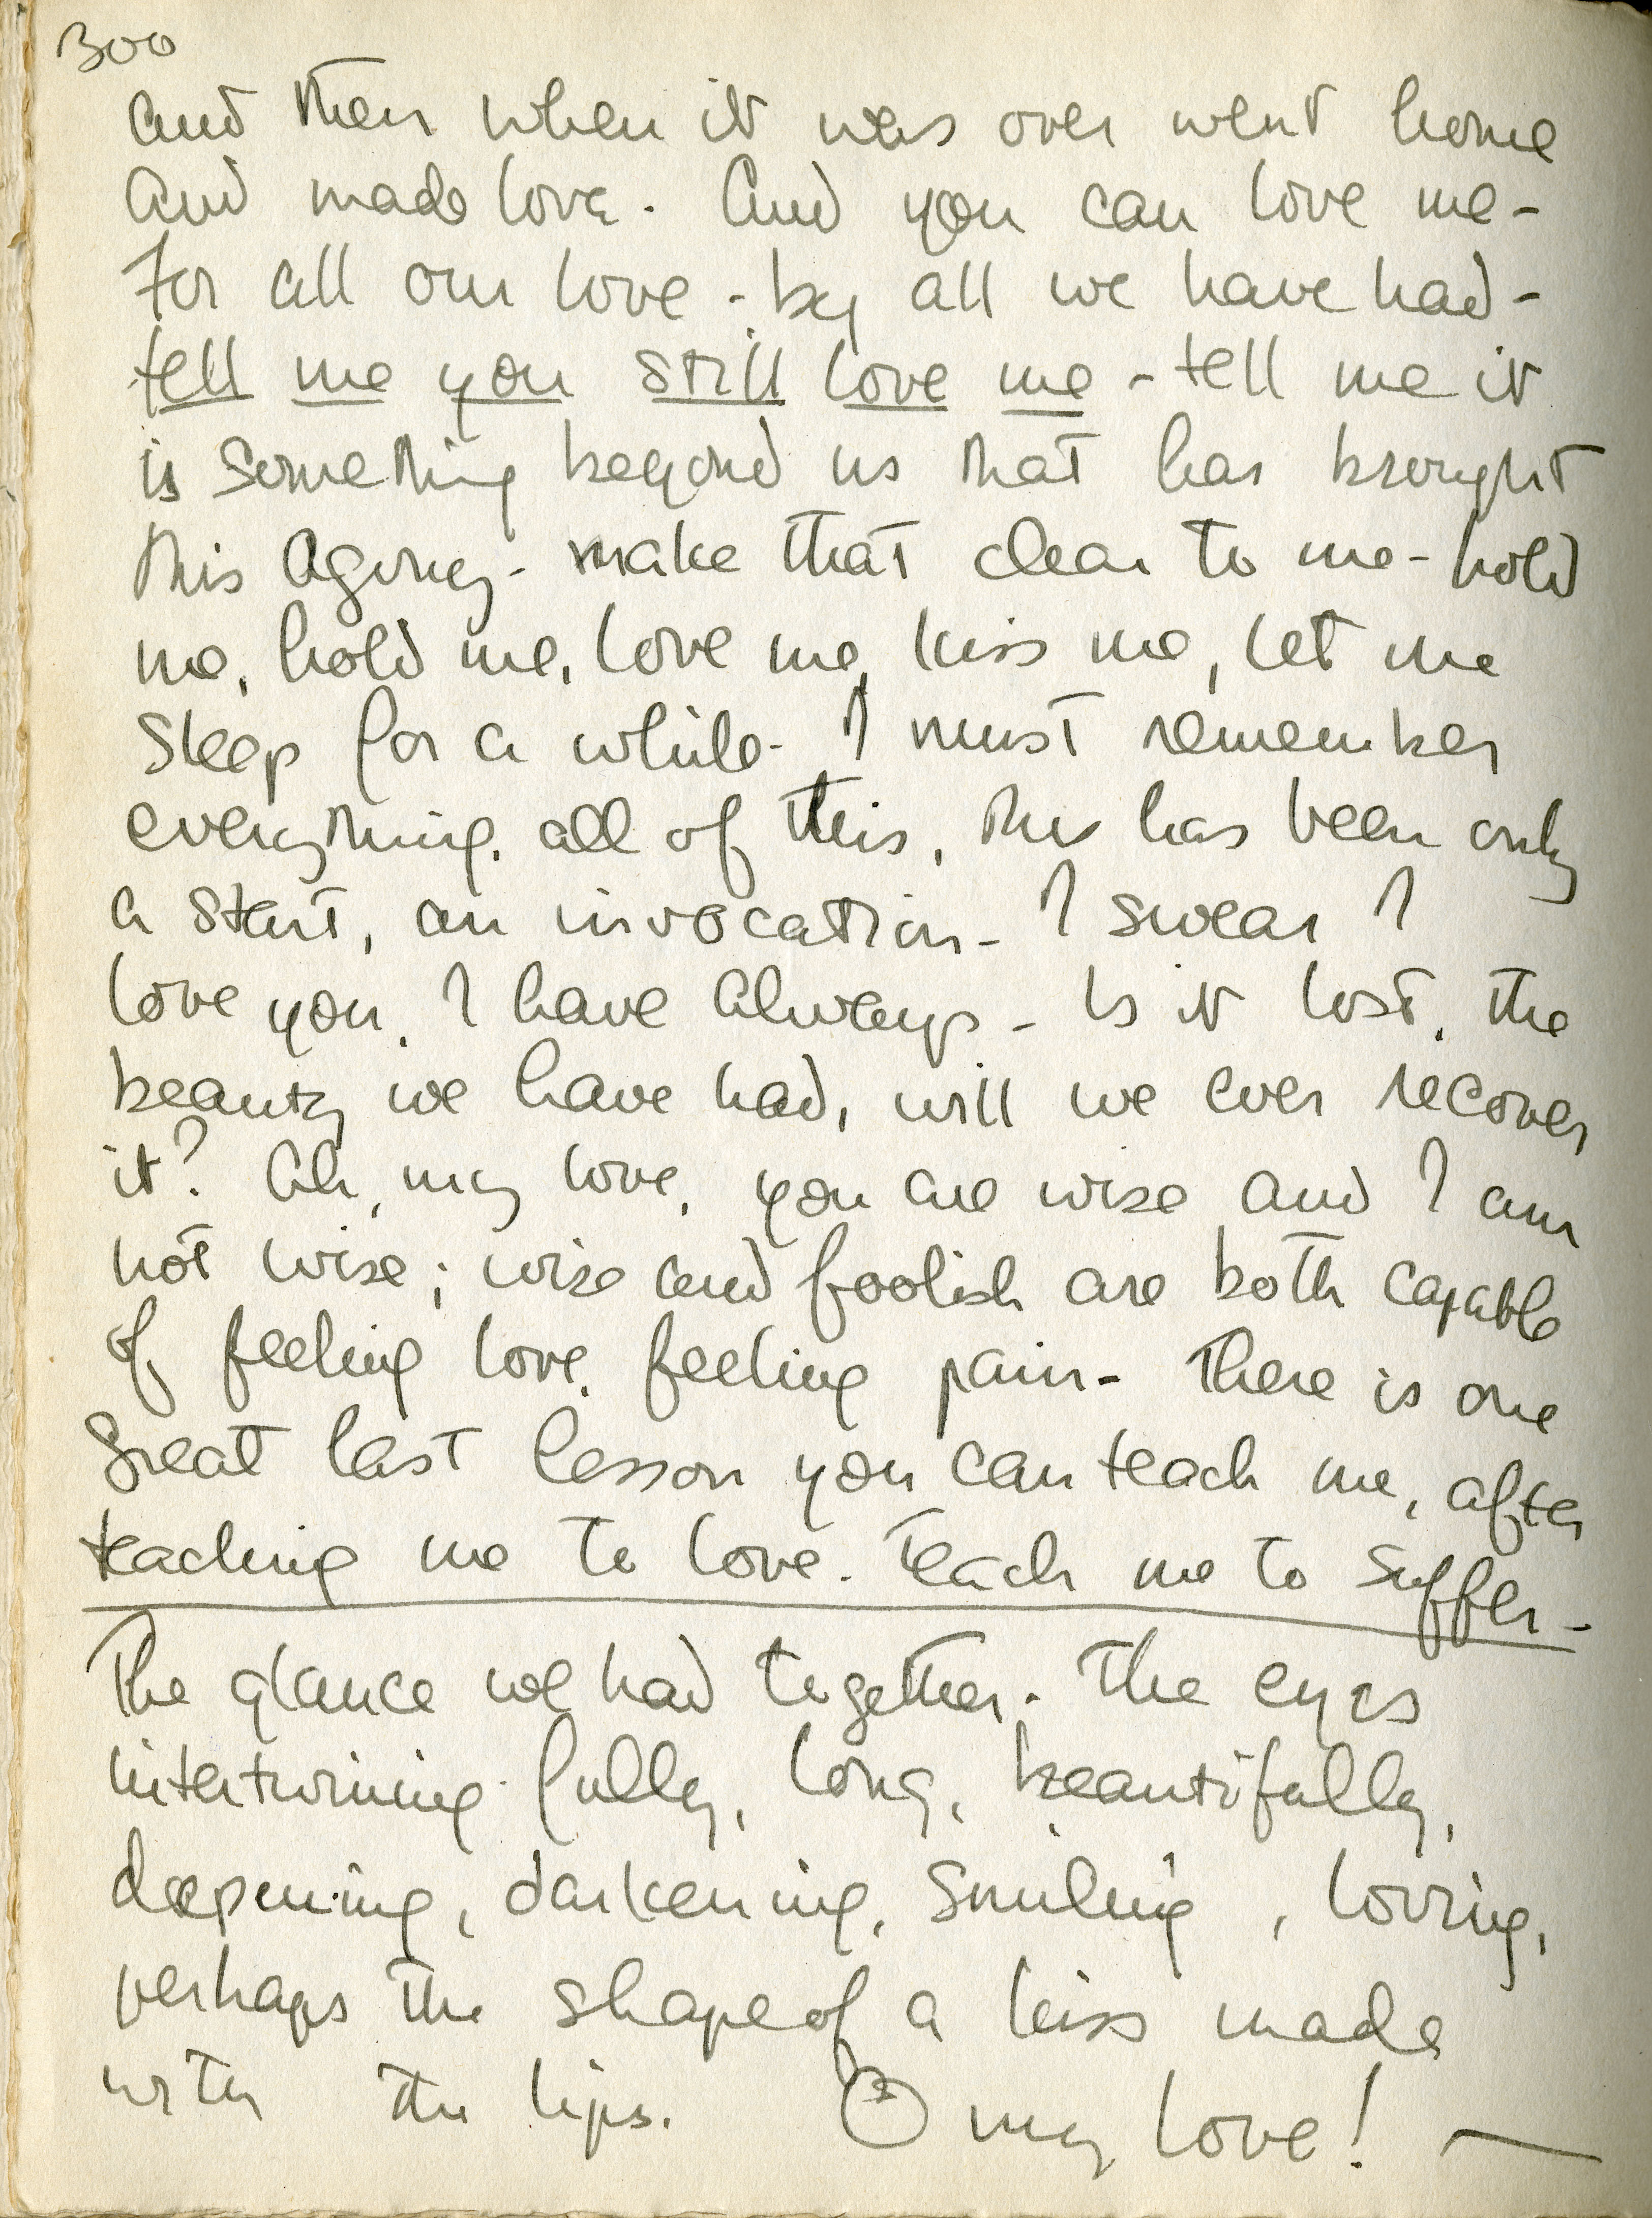 300
and then when it was over went home
and made love. And you can love me -
For all our love - by all we have had -
tell me you still love me - tell me it
is something beyond us that has brought
this agony - make that clear to me - hold
me, hold me, love me, kiss me, let me
sleep for a while - I must remember
everything, all of this, this has been only
a start, an invocation - I swear I
love you, I have always - Is it lost, the
beauty we have had, will we ever recover
it? Ah, my love, you are wise and I am
not wise; wise and foolish are both capable
of feeling love, feeling pain - There is one
great last lesson you can teach me, after
teaching me to love. Teach me to suffer -
The glance we had together. The eyes
intertwining fully, long, beautifully,
deepening, darkening, smiling, loving,
perhaps the shape of a kiss made
with the lips. O my love! —